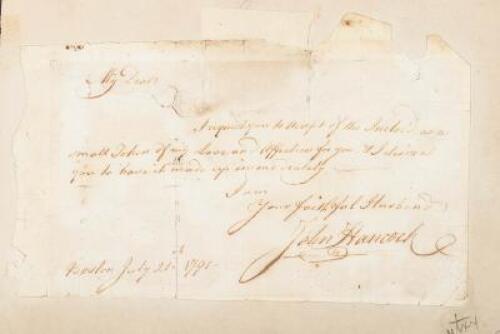 My Dear
I request you to Accept of the Inclosd as a
small Token of my Love and Affection for you & I desire
you to have it made up immediately
I am
Your faithful Husband
John Hancock
Boston July 21st 1791